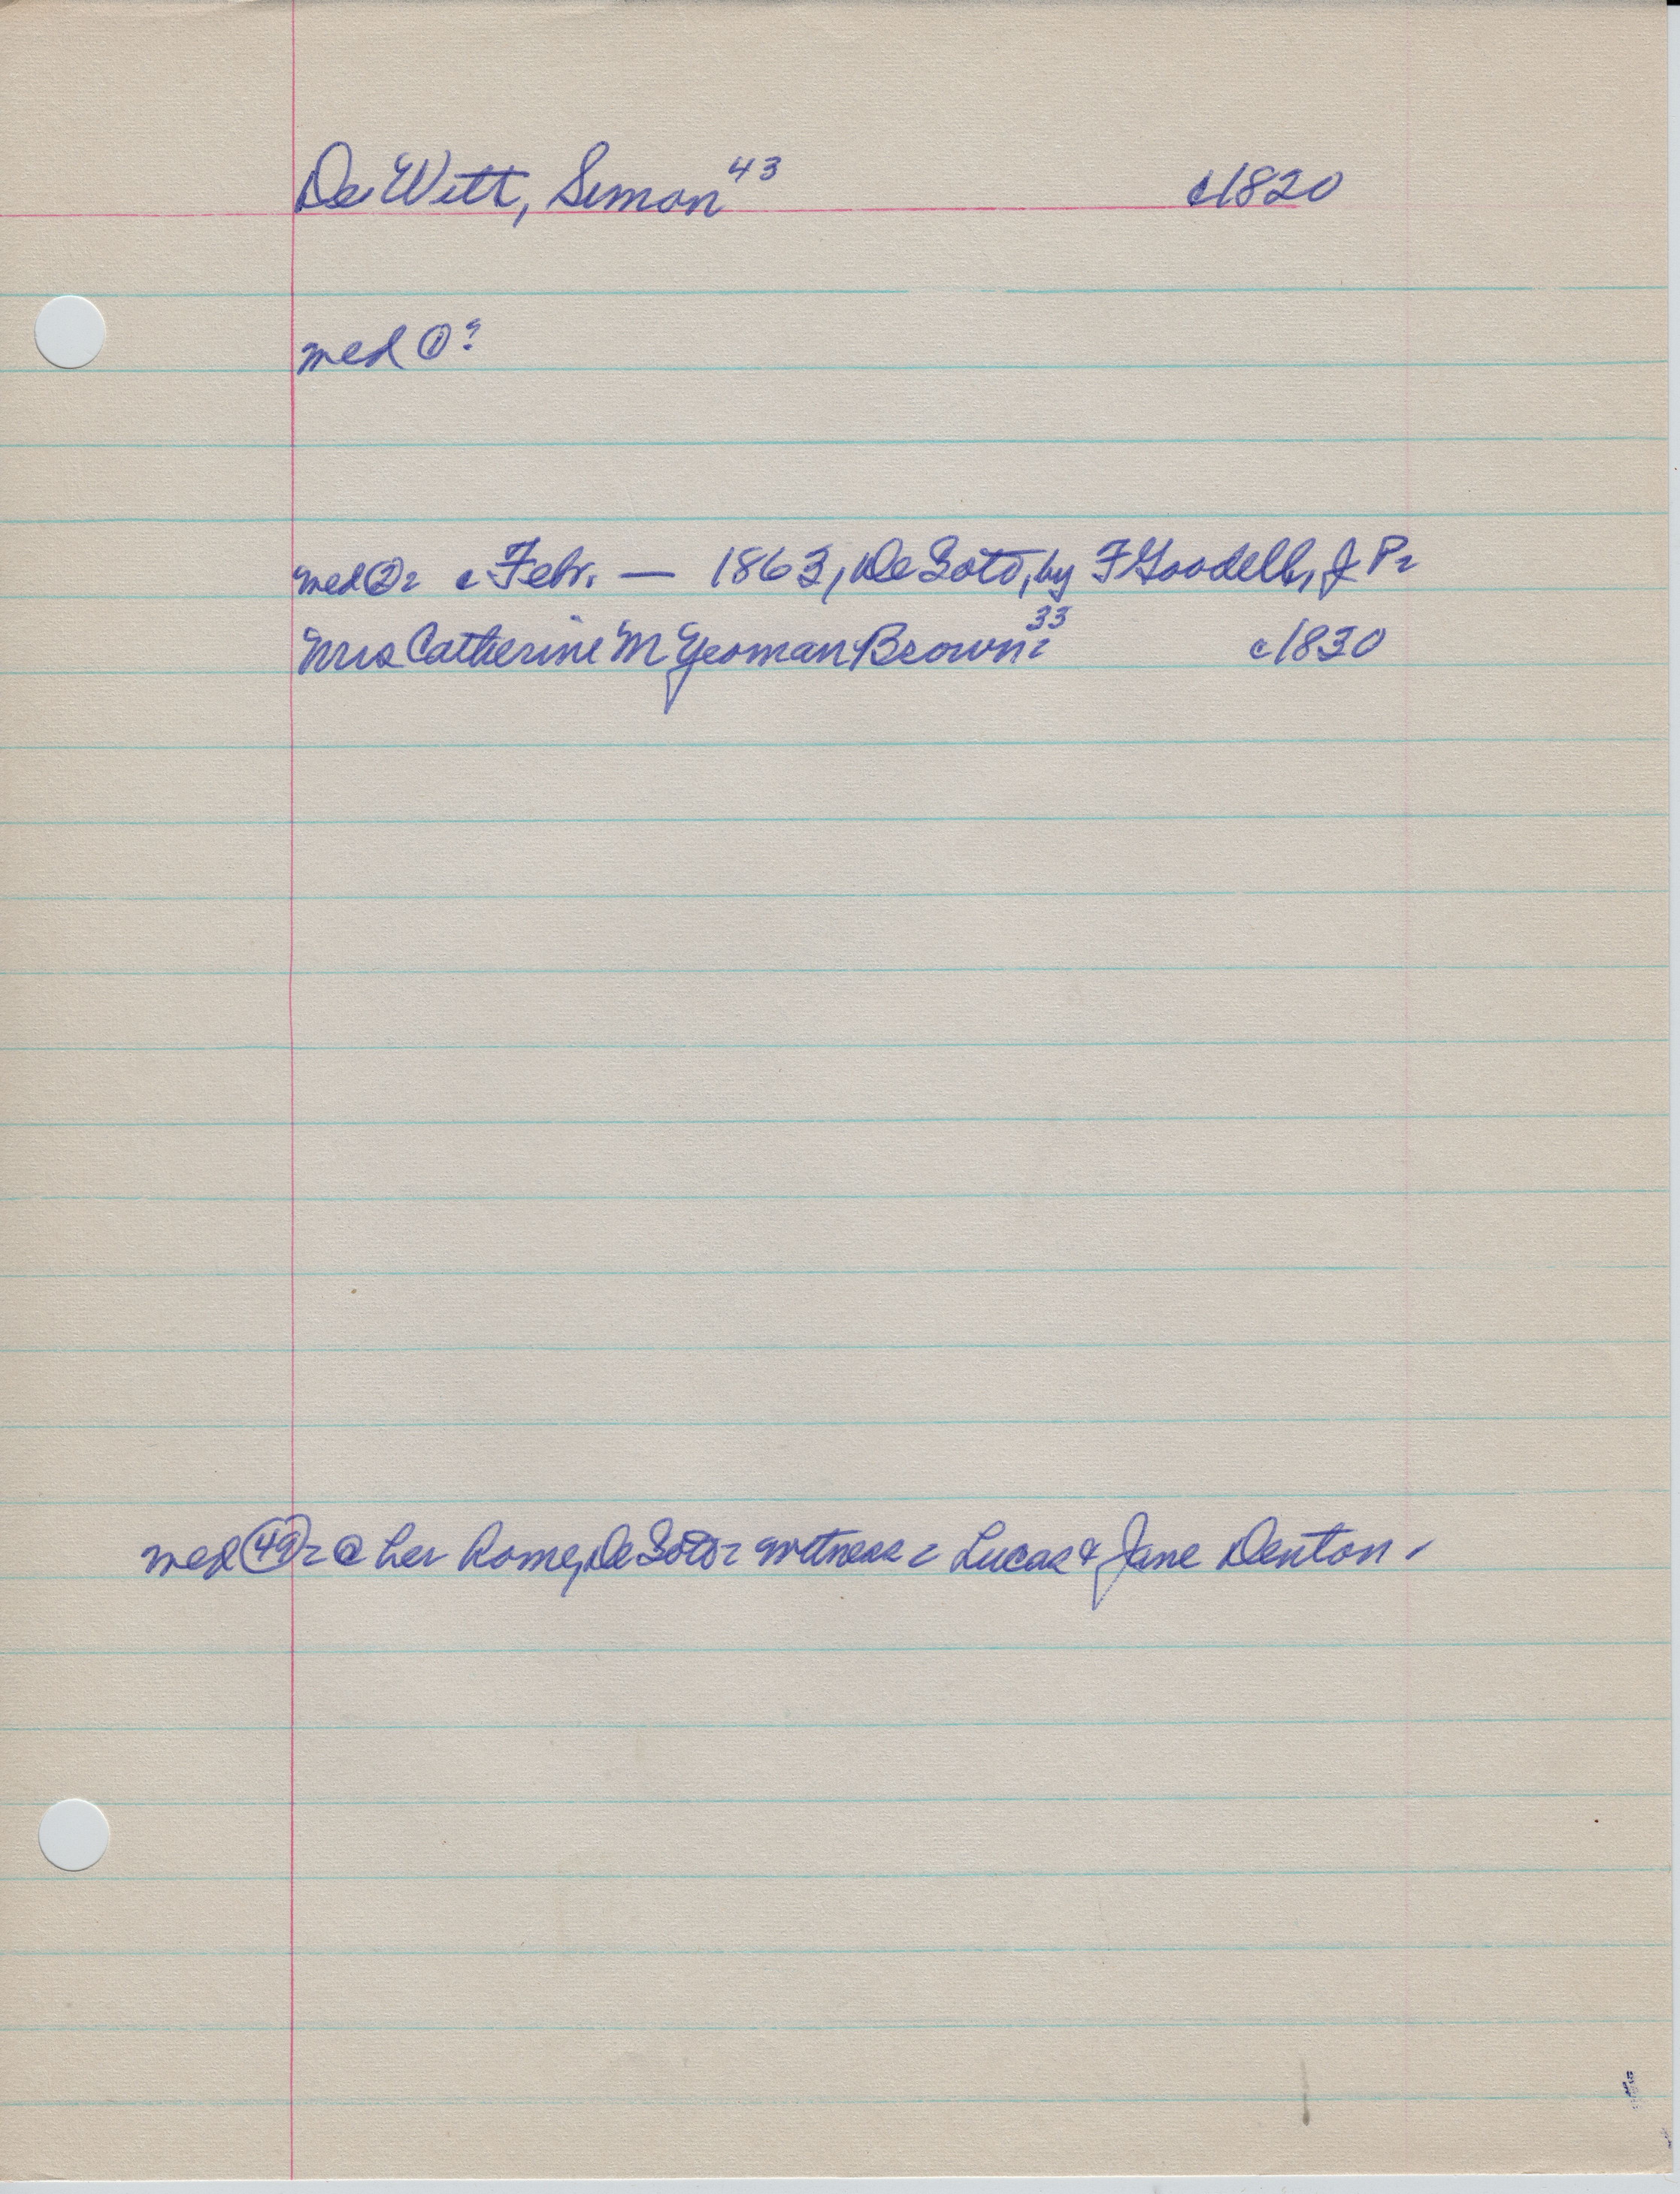 DeWitt, Simon 43 c1820
med ① ?
med ② c Febr. — 1863, De Soto, by F Goodell, J P
Mrs Catherine M Yeoman Brown 33 c1830
med @ her home, De Soto witness Lucas & Jane Denton.